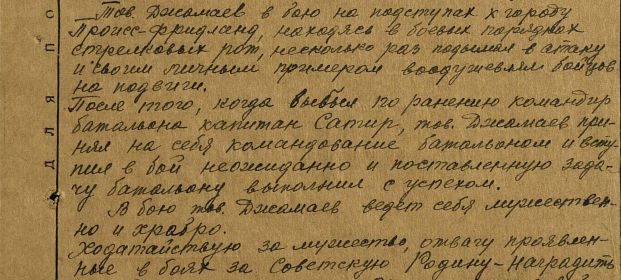 Тов. Джамаев в бою на подступах к городу
Пройсс-Фридланд, находясь в боевых порядках
стрелковых рот, несколько раз подымал в атаку
и своим личным примером воодушевлял бойцов
на подвиги.
После того, когда выбыл по ранению командир
батальона капитан Сатир, тов. Джамаев при-
нял на себя командование батальоном и всту-
пил в бой неожиданно и поставленную зада-
чу батальону выполнил с успехом.
В бою тов. Джамаев ведет себя мужествен-
но и храбро.
Ходатайствую за мужество, отвагу проявлен-
ные в боях за Советскую Родину - наградить
д л я п о